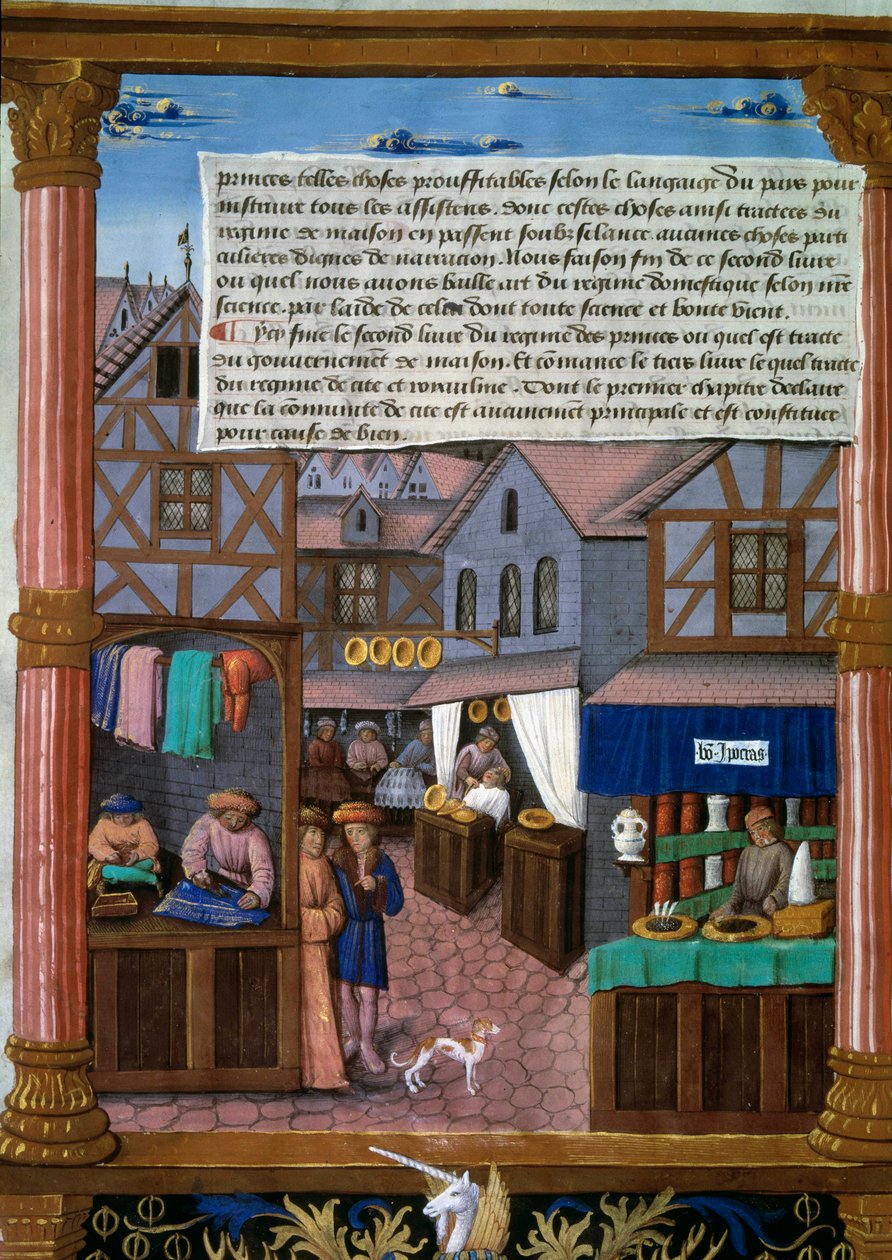 princes telles choses prouffitables selon le langaige du pays pour
instruire tous les assistens. Donc cestes choses ainsi tractees du
regime de maison en passent soubz silance aucunes choses parti
culieres dignes de narracion. Nous faison fin de ce second livre
ou quel nous avons baillé art du regime domestique selon nr̄e
science. par laide de celui dont toute science et bonte vient.
Cy fine le second livre du regime des princes ou quel est tracté
du gouvernemēt de maison. Et cōmance le tiers livre le quel tracte
du regime de cite et royaulme. Dont le premier chapitre declaire
que la cōmunite de cite est aucunemēt principale et est constituee
pour cause de bien.
bō Ipocras